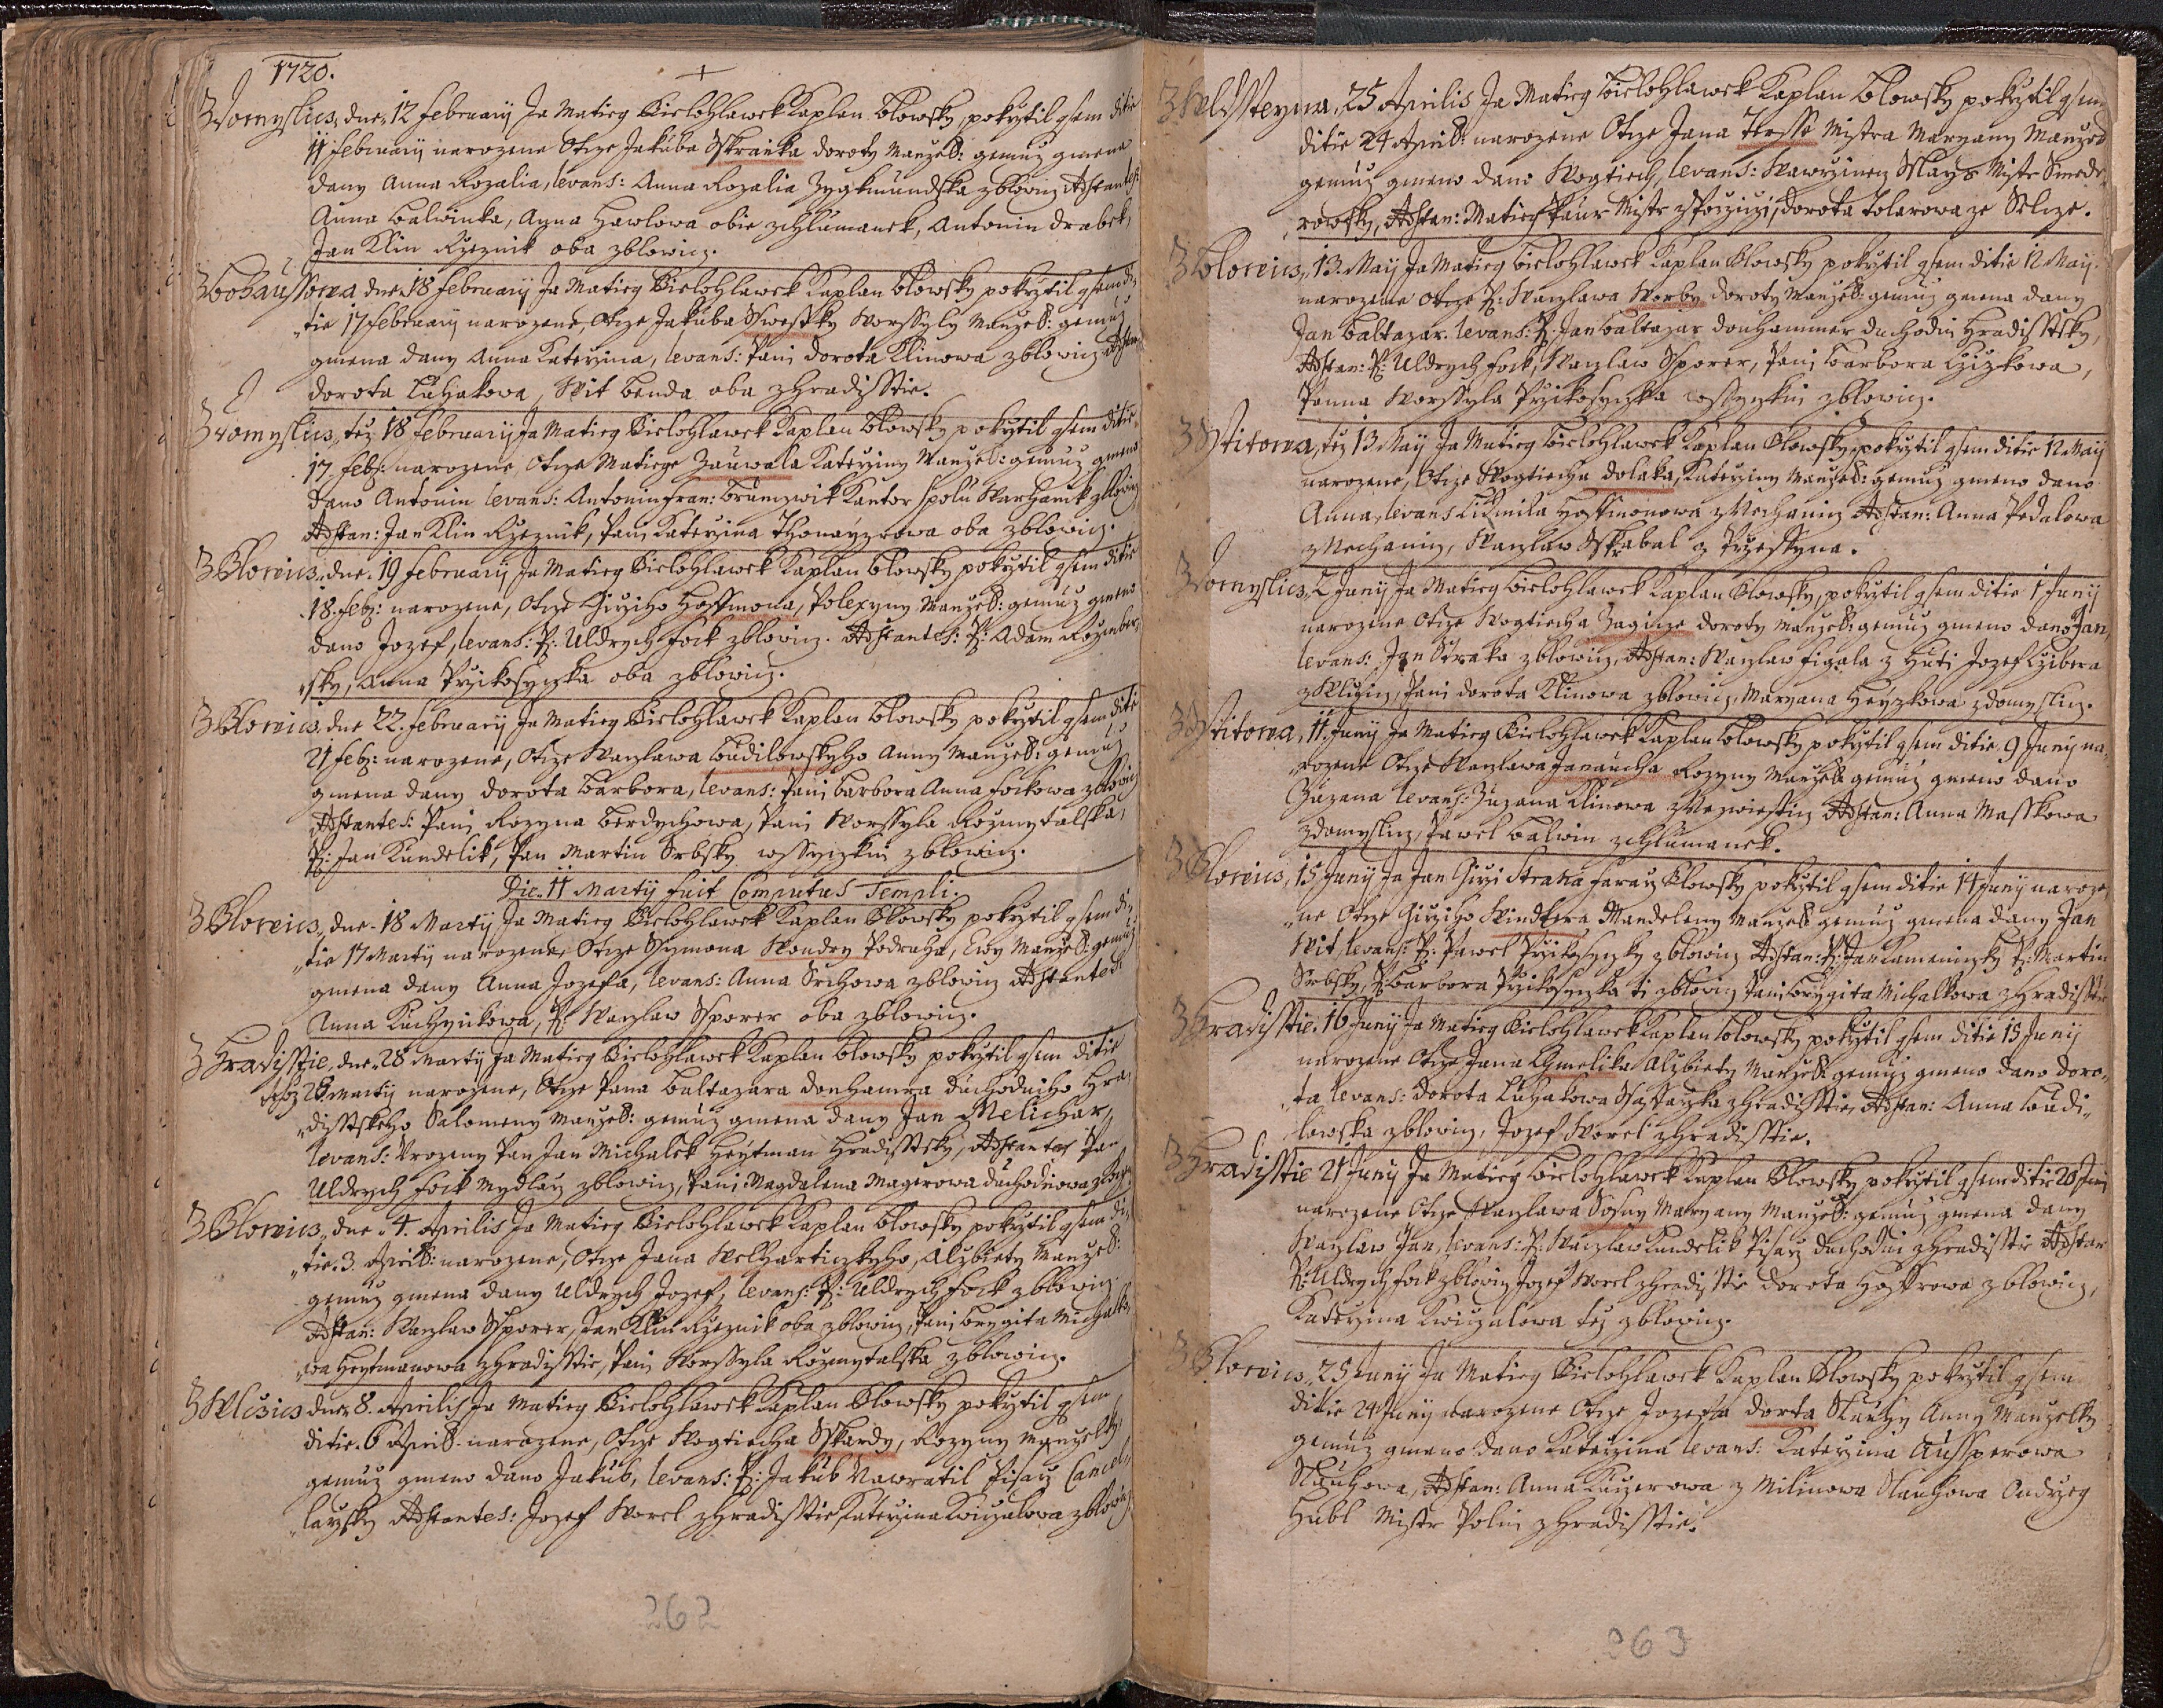 1720.
Z Domyslicz, dne 12 February Ja Matieg Bielohlawek Kaplan Blowsky, pokrztil gsem ditie
11 February narozene Otcze Jakuba Skranka doroty Manzel: gemuz gmena
dany Anna Rozalia, levans: Anna Rozalia Zygkmundska zblowicz Adstantes:
Anna Balwinka, Anna Hawlowa obie zchlumanek, Antonin drabek,
Jan Klin Rzeznik oba zblowicz.
Z Bohaussowa dne 18 February Ja Matieg Bielohlawek Kaplan Blowsky pokrztil gsem di-
tie 17 February narozene, Otcze Jakuba Sswestky Worssyly Manzel: gemuz
gmena dany Anna Katerzina, levans: Pani dorota Klinowa zblowicz Adstan:
dorota Luhakowa, Wit Benda oba zhradisstie.
Z Domyslicz, tez 18 February Ja Matieg Bielohlawek Kaplan Blowsky pokrztil gsem ditie
17. Feb: narozene, Otcze Matiege Zauwala Katerziny Manzel: gemuz gmeno
dano Antonin levans: Antonin Fran: Brunczwik Kantor spolu Warhanik zblowicz
Adstan: Jan Klin Rzeznik, Pani Katerzina Thonayzrowa oba zblowicz.
Z Blowicz, dne 19 February Ja Matieg Bielohlawek Kaplan Blowsky pokrztil gsem ditie
18. Feb: narozene, Otcze Girziho Hoffmona, Polexyny Manzel: gemuz gmeno
dano Jozef, levans: P: Uldrych Fock zblowicz. Adstantes: P: Adam Rozmber-
sky, Anna Przikosyczka oba zblowicz.
Z Blowicz, dne 22. February Ja Matieg Bielohlawek Kaplan Blowsky pokrztil gsem ditie
21 Feb: narozene, Otcze Waczlawa Budilowskyho Anny Manzel: gemuz
gmena dany dorota Barbora, levans: Pani Barbora Anna Fockowa zblowicz
Adstantes: Pani Rozyna Berdychowa, Pani Worssyla Rozmytalska,
P: Jan Kundelik, Pan Martin Srbsky wssyczkni zblowicz.
Die 11 Martij fuit Computus Templi.
Z Blowicz, dne 18 Martij Ja Matieg Bielohlawek Kaplan Blowsky pokrztil gsem di-
tie 17 Martij narozene, Otcze Ssymona Wondry Podruha, Ewy Manzel: gemuz
gmena dany Anna Jozefa, levans: Anna Srchowa zblowicz Adstantes:
Anna Kuchynkowa, P: Waczlaw Ssporer oba zblowicz.
Z Hradisstie, dne 28 Martij Ja Matieg Bielohlawek Kaplan Blowsky pokrztil gsem ditie
tehoz 28 Martij narozene, Otcze Pana Baltazara donhamera duchodniho Hra-
disstskeho Salomeny Manzel: gemuz gmena dany Jan Melichar,
levans: Urozeny Pan Jan Michalek Heytman Hradisstsky, Adstantes Pan
Uldrych Fock Mydlarz zblowicz, Pani Magdalena Magerowa duchodniowa
Z Blowicz, dne 4. Aprilis Ja Matieg Bielohlawek Kaplan Blowsky pokrztil gsem di-
tie 3. April: narozene, Otcze Jana Welharticzkyho, Alzbiety Manzel:
gemuz gmena dany Uldrych Jozef, levans: P: Uldrych Fock zblowicz
Adstan: Waczlaw Ssporer, Jan Klin Rzeznik oba zblowicz, Pani Brygita Michalko-
wa Heytmanowa zhradisstie, Pani Worssyla Rozmytalska zblowicz.
Z Wlcicz dne 8. Aprilis Ja Matieg Bielohlawek Kaplan Blowsky pokrztil gsem
ditie 6 April. narozene, Otcze Wogtiecha Sskardy, Rozyny Manzelky
gemuz gmeno dano Jakub, levans: P: Jakub Nawratil Pisarz Cancel-
larzsky Adstantes: Jozef Worel zhradisstie, Katerzina Kwiczalowa zblowicz
262
Z Wldssteyna, 25 Aprilis Ja Matieg Bielohlawek Kaplan Blowsky pokrztil gsem
ditie 24 April: narozene Otcze Jana Tersse Mistra Maryany Manzel
gemuz gmeno dano Wogtiech, levans: Wawrzinecz Mays Mistr Smede-
rowsky, Adstan: Matieg Paur Mistr zporziczi, dorota Tolarowa ze Selcze.
Z Blowicz, 13. May Ja Matieg Bielohlawek Kaplan Blowsky pokrztil gsem ditie 12 May
narozene Otcze P: Waczlawa Worby doroty Manzel: gemuz gmena dany
Jan Baltazar. levans: P: Jan Baltazar donhammer duchodni Hradisstsky,
Adstan: P: Uldrych Fock, Waczlaw Ssporer, Pani Barbora Czizkowa,
Panna Worssyla Przikosyczka wssyczkni zblowicz.
Z Sstitowa, tez 13 May Ja Matieg Bielohlawek Kaplan Blowsky, pokrztil gsem ditie 12 May
narozene, Otcze Wogtiecha dolaka, Katerziny Manzel: gemuz gmeno dano
Anna, levans Lidmila Hoffmonowa zNechanicz Adstan: Anna Pedalowa
zNechanicz, Waczlaw Sskabal z Przessyna.
Z Domyslicz, 2 Juny Ja Matieg Bielohlawek Kaplan Blowsky, pokrztil gsem ditie 1 Juny
narozene Otcze Wogtiecha Zagicze doroty Manzel: gemuz gmeno dano Jan,
levans: Jan Straka zblowicz, Adstan: Waczlaw Figala z Huti Jozef Czibera
zWlczicz, Pani dorota Klinowa zblowicz, Maryana Heyzkowa zdomyslicz.
Z Sstitowa, 11. Juny Ja Matieg Bielohlawek Kaplan Blowsky pokrztil gsem ditie 9 Juny na-
rozene Otcze Waczlawa Janaucha Rozyny Manzel: gemuz gmeno dano
Zuzana levans: Zuzana Klinowa zNezwiesticz Adstan: Anna Masskowa
zdomyslicz, Pawel Balwin zchlumanek.
Z Blowicz, 15 Juny Ja Jan Girzi Straka Fararz Blowsky pokrztil gsem ditie 14 Juny naroze-
ne Otcze Girziho Windtera Mandeleny Manzel: gemuz gmena dany Jan
Wit, levans: P: Pawel Przikosyczky zblowicz Adstan: P: Jan Kameniczky P: Martin
Srbsky, P: Barbora Przikosyczka ti zblowicz Pani Brygita Michalkowa zhradisstie
Z Hradisstie, 16 Juny Ja Matieg Bielohlawek Kaplan Blowsky pokrztil gsem ditie 15 Juny
narozene Otcze Jana Chmelika Alzbiety Manzel: gemuz gmeno dano doro-
ta levans: dorota Luhakowa Ssaffarzka zhradisstie, Adstan: Anna Budi-
lowska zblowicz, Jozef Worel zhradisstie.
Z Hradisstie 21 Juny Ja Matieg Bielohlawek Kaplan Blowsky pokrztil gsem ditie 20 Juny
narozene Otcze Waczlawa Sosny Maryany Manzel: gemuz gmena dany
Waczlaw Jan, levans: P: Waczlaw Kundelik Pisarz duchodni zhradisstie Adstan
P: Uldrych Fock zblowicz Jozef Worel zhradisstie dorota zblowicz,
Katerzina Kwiczalowa tez zblowicz.
Z Blowicz, 25 Juny Ja Matieg Bielohlawek Kaplan Blowsky pokrztil gsem
ditie 24 Juny narozene Otcze Jozefa dorta Slauhy Anny Manzelky
gemuz gmeno dano Katerzina levans: Katerzina Aussperowa
Slauhowa, Adstan: Anna Kuczerowa z Milinowa Slauhowa Ondrzeg
Hubl Mistr Polni zhradisstie.
263